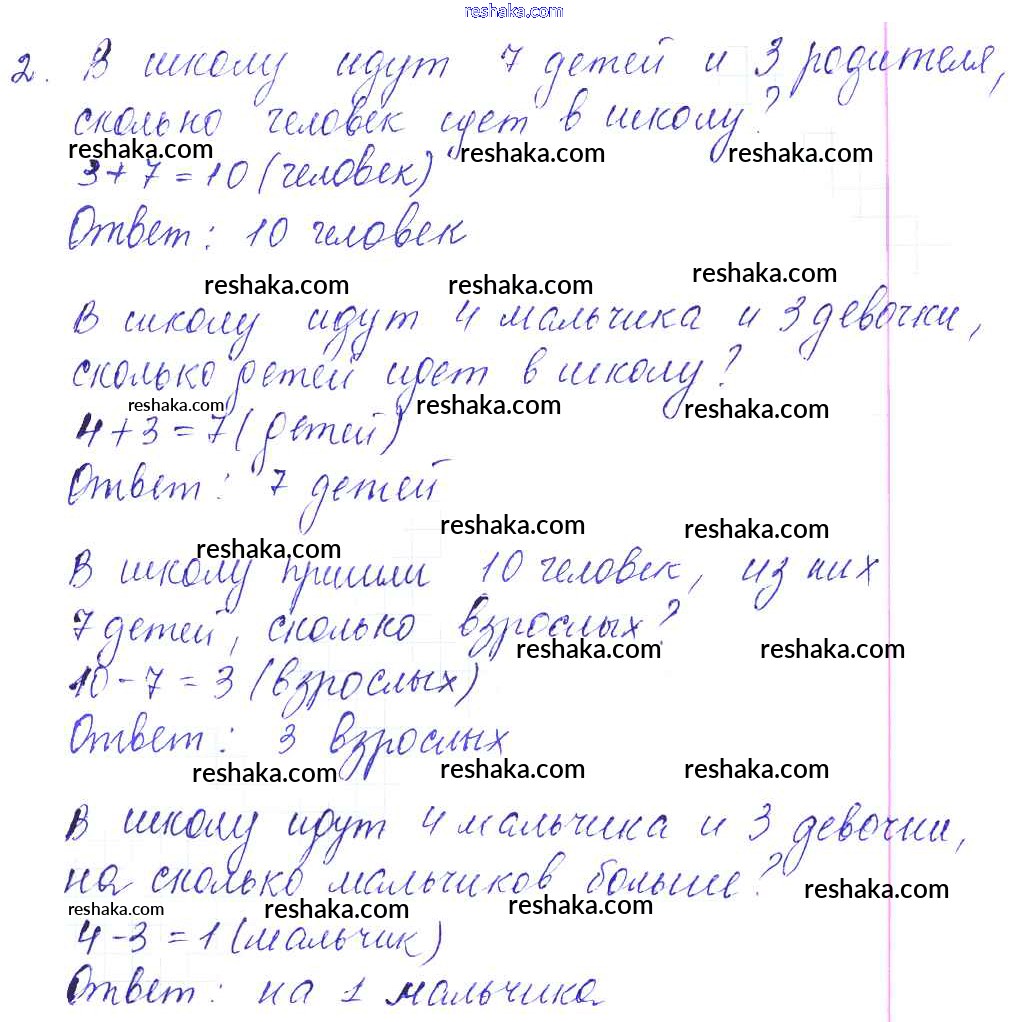 reshaka.com
2. В школу идут 7 детей и 3 родителя,
сколько человек идет в школу?
reshaka.com reshaka.com reshaka.com
3+7=10 (человек)
Ответ: 10 человек
reshaka.com reshaka.com reshaka.com
В школу идут 4 мальчика и 3 девочки,
сколько детей идет в школу?
reshaka.com reshaka.com reshaka.com
4+3=7 (детей)
Ответ: 7 детей
reshaka.com reshaka.com reshaka.com
В школу пришли 10 человек, из них
7 детей, сколько взрослых?
reshaka.com reshaka.com
10-7=3 (взрослых)
Ответ: 3 взрослых
reshaka.com reshaka.com reshaka.com
В школу идут 4 мальчика и 3 девочки,
на сколько мальчиков больше?
reshaka.com reshaka.com reshaka.com reshaka.com
4-3=1 (мальчик)
Ответ: на 1 мальчика